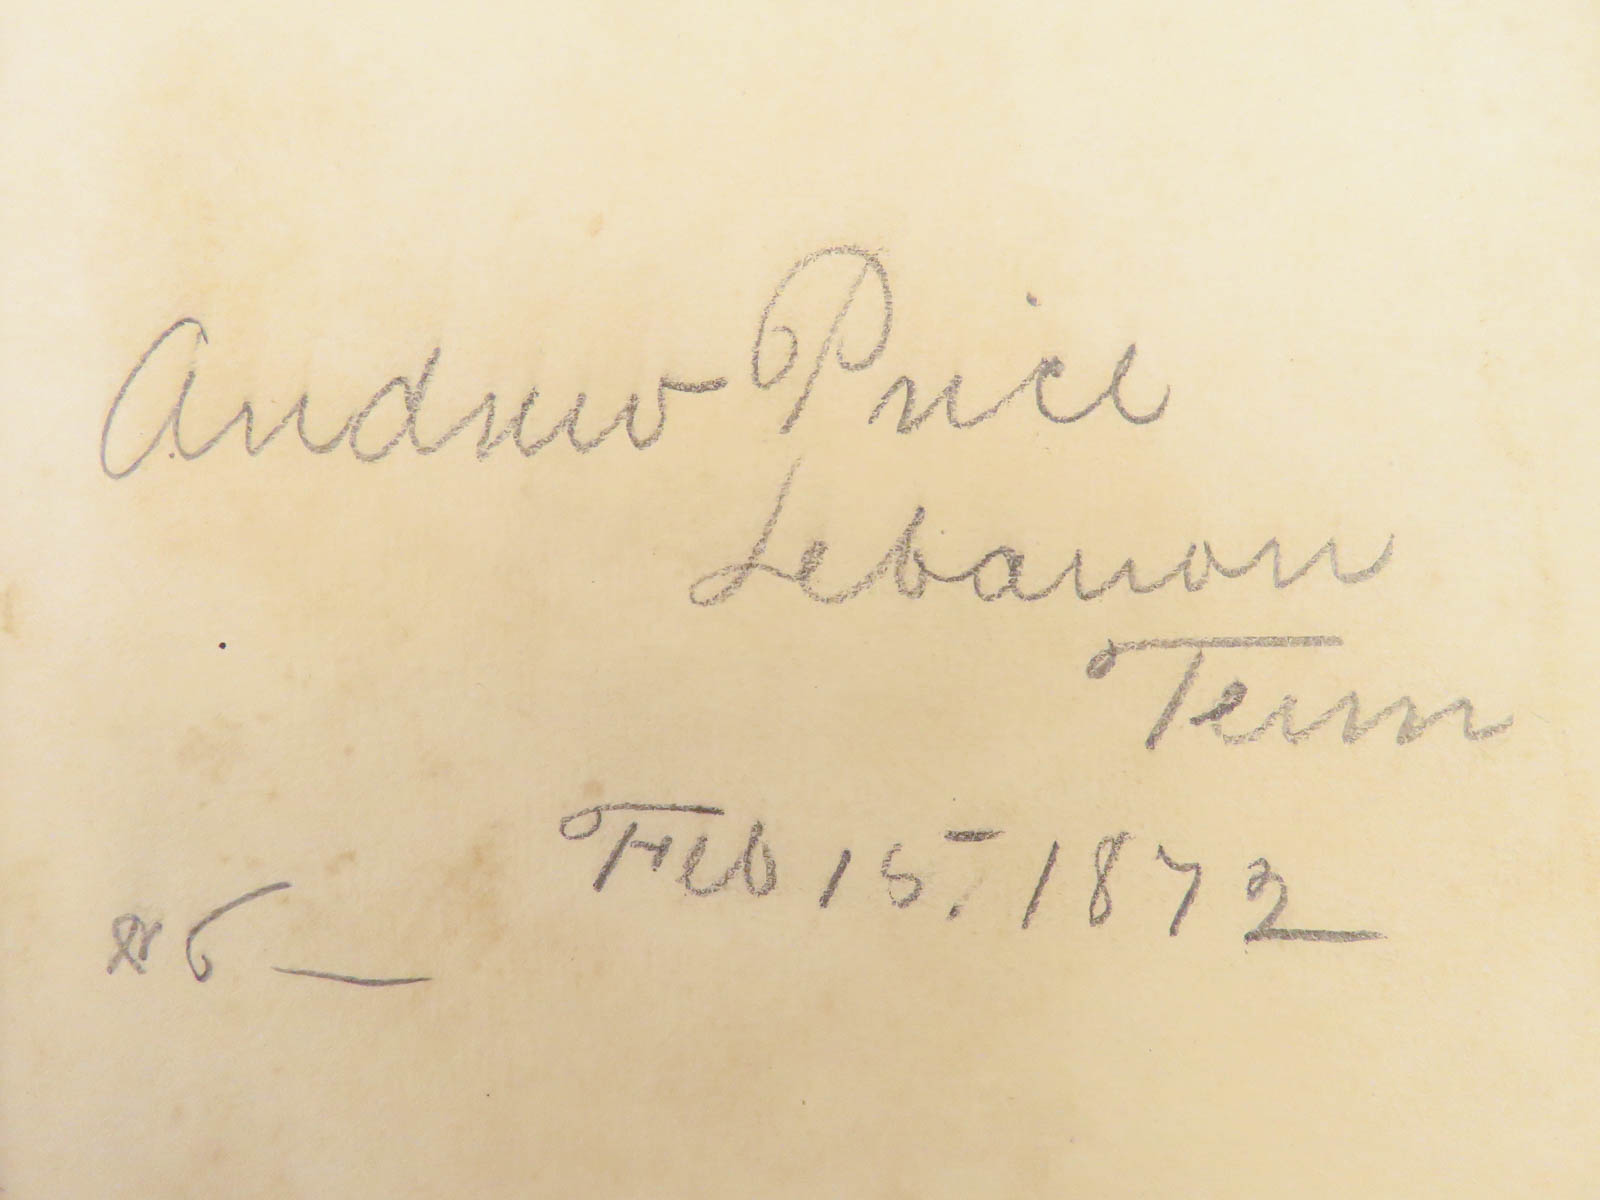 Andrew Price
Lebanon
Tenn
Feb 15. 1872